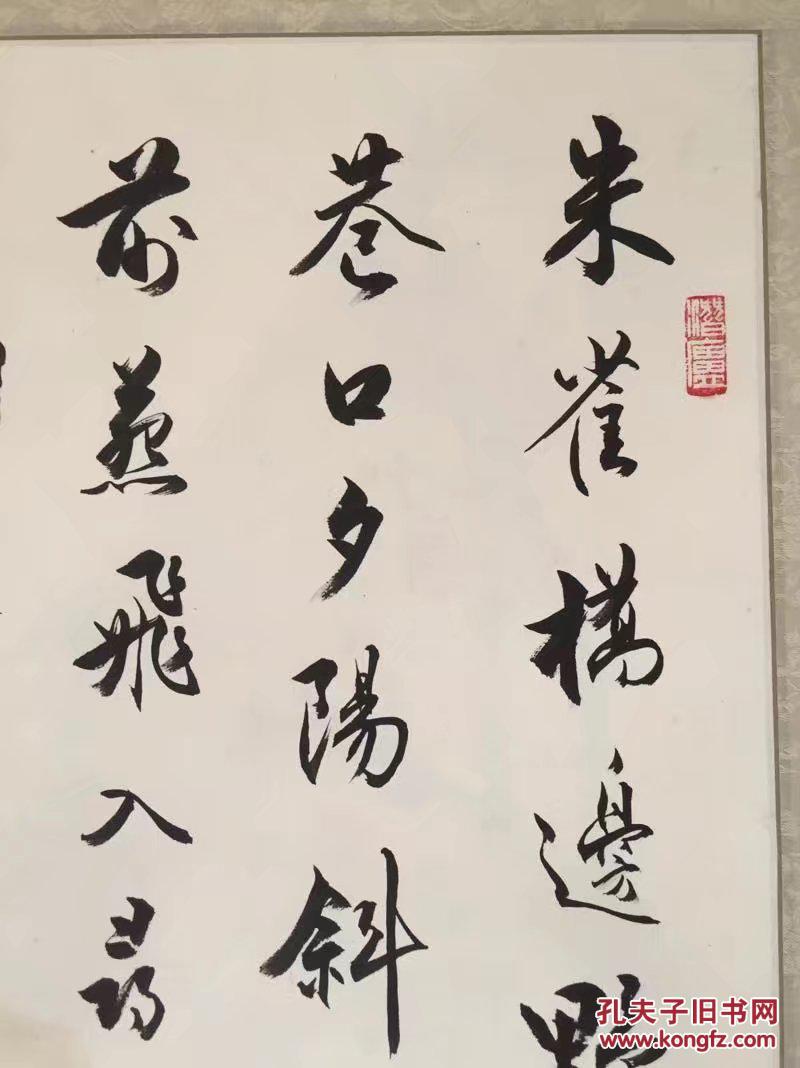 朱雀橋邊野
巷口夕陽斜
前燕飛入尋
孔夫子旧书网
www.kongfz.com